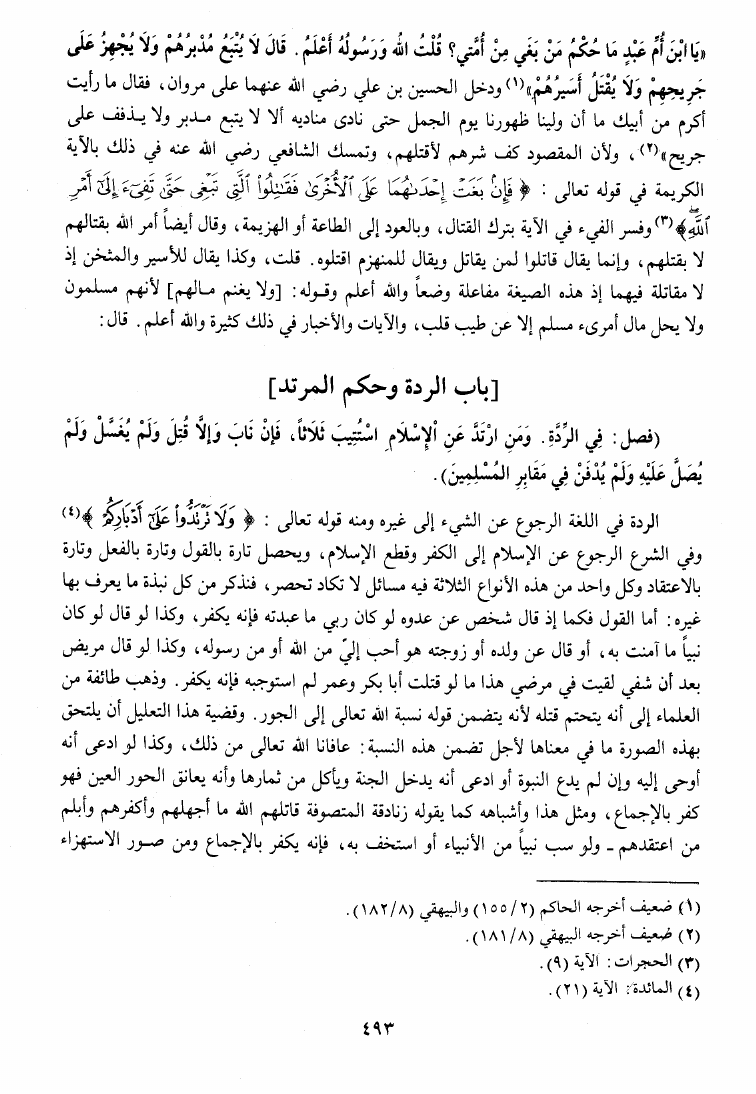 «يَا ابْنَ أُمِّ عَبْدٍ مَا حُكْمُ مَنْ بَغَي مِنْ أُمَّتي؟ قُلْتُ اللهُ وَرَسُولُهُ أَعْلَمُ. قَالَ لَا يُتْبَعُ مُدْبَرُهُمْ وَلَا يُجْهِزُ عَلَى
جَرِيحِهِمْ وَلَا يُقْتَلُ أَسِيرُهُمْ»(١) ودخل الحسين بن علي رضي الله عنهما على مروان، فقال ما رأيت
أكرم من أبيك ما أن ولينا ظهورنا يوم الجمل حتى نادى مناديه ألا لا يتبع مدبر ولا يذفف على
جريح»(٢)، ولأن المقصود كف شرهم لأقتلهم، وتمسك الشافعي رضي الله عنه في ذلك بالآية
الكريمة في قوله تعالى: ﴿ فَإِنْ بَغَتْ إِحْدَىٰهُمَا عَلَى ٱلْأُخْرَىٰ فَقَـٰتِلُوا۟ ٱلَّتِى تَبْغِى حَتَّىٰ تَفِىٓءَ إِلَىٰٓ أَمْرِ
ٱللَّهِ﴾(٣) وفسر الفيء في الآية بترك القتال، وبالعود إلى الطاعة أو الهزيمة، وقال أيضاً أمر الله بقتالهم
لا بقتلهم، وإنما يقال قاتلوا لمن يقاتل ويقال للمنهزم اقتلوه. قلت، وكذا يقال للأسير والمثخن إذ
لا مقاتلة فيهما إذ هذه الصيغة مفاعلة وضعاً والله أعلم وقوله: [ولا يغنم مالهم] لأنهم مسلمون
ولا يحل مال أمرىء مسلم إلا عن طيب قلب، والآيات والأخبار في ذلك كثيرة والله أعلم. قال:
[باب الردة وحكم المرتد]
(فصل: فِي الرِّدَّةِ. وَمَنِ ارْتَدَّ عَنِ الْإِسْلَامِ اسْتُتِيبَ ثَلَاثاً، فَإِنْ تَابَ وَإِلَّا قُتِلَ وَلَمْ يُغَسَّلْ وَلَمْ
يُصَلَّ عَلَيْهِ وَلَمْ يُدْفَنْ فِي مَقَابِرِ الْمُسْلِمِينَ).
الردة في اللغة الرجوع عن الشيء إلى غيره ومنه قوله تعالى: ﴿ وَلَا تَرْتَدُّوا۟ عَلَىٰٓ أَدْبَارِكُمْ ﴾(٤)
وفي الشرع الرجوع عن الإسلام إلى الكفر وقطع الإسلام، ويحصل تارة بالقول وتارة بالفعل وتارة
بالاعتقاد وكل واحد من هذه الأنواع الثلاثة فيه مسائل لا تكاد تحصر، فنذكر من كل نبذة ما يعرف بها
غيره: أما القول فكما إذ قال شخص عن عدوه لو كان ربي ما عبدته فإنه يكفر، وكذا لو قال لو كان
نبياً ما آمنت به، أو قال عن ولده أو زوجته هو أحب إليّ من الله أو من رسوله، وكذا لو قال مريض
بعد أن شفي لقيت في مرضي هذا ما لو قتلت أبا بكر وعمر لم استوجبه فإنه يكفر. وذهب طائفة من
العلماء إلى أنه يتحتم قتله لأنه يتضمن قوله نسبة الله تعالى إلى الجور. وقضية هذا التعليل أن يلتحق
بهذه الصورة ما في معناها لأجل تضمن هذه النسبة: عافانا الله تعالى من ذلك، وكذا لو ادعى أنه
أوحى إليه وإن لم يدع النبوة أو ادعى أنه يدخل الجنة ويأكل من ثمارها وأنه يعانق الحور العين فهو
كفر بالإجماع، ومثل هذا وأشباهه كما يقوله زنادقة المتصوفة قاتلهم الله ما أجهلهم وأكفرهم وأبلم
من اعتقدهم ـ ولو سب نبياً من الأنبياء أو استخف به، فإنه يكفر بالإجماع ومن صور الاستهزاء
(١) ضعيف أخرجه الحاكم (٢/ ١٥٥) والبيهقي (٨/ ١٨٢).
(٢) ضعيف أخرجه البيهقي (٨/ ١٨١).
(٣) الحجرات: الآية (٩).
(٤) المائدة: الآية (٢١).
٤٩٣